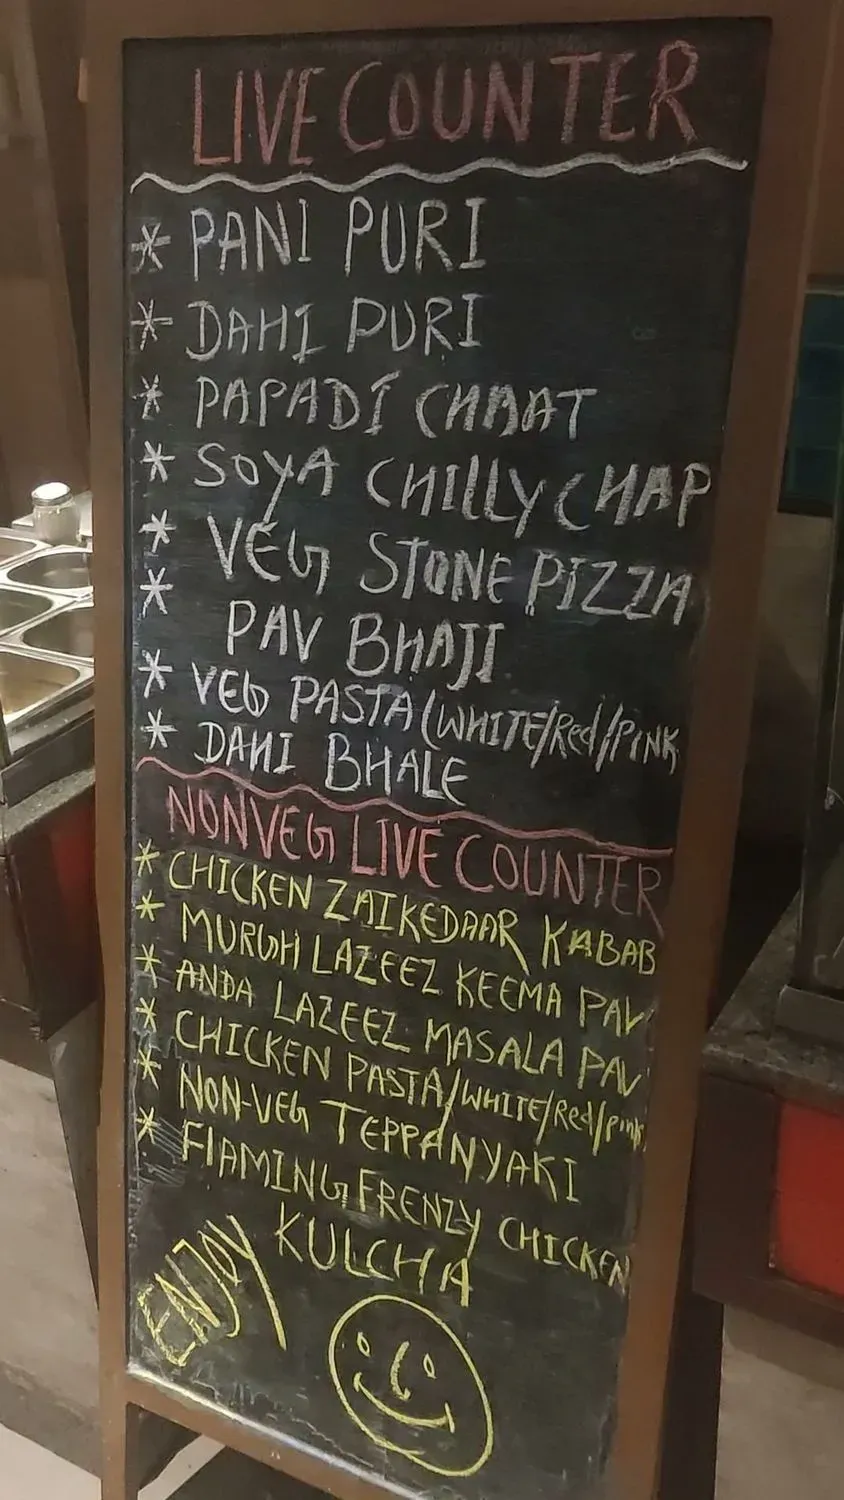 LIVE COUNTER
* PANI PURI
* DAHI PURI
* PAPADI CHAAT
* SOYA CHILLY CHAP
* VEG STONE PIZZA
* PAV BHAJI
* VEG PASTA (WHITE/Red/PINK
* DAHI BHALE
NONVEG LIVE COUNTER
* CHICKEN ZAIKEDAAR KABAB
* MURGH LAZEEZ KEEMA PAV
* ANDA LAZEEZ MASALA PAV
* CHICKEN PASTA/WHITE/Red/pink
* NON-VEG TEPPANYAKI
* FlAMING FRENZY CHICKEN
KULCHA
ENJOY